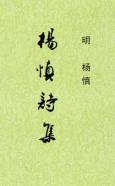 明 杨慎
楊慎詩集